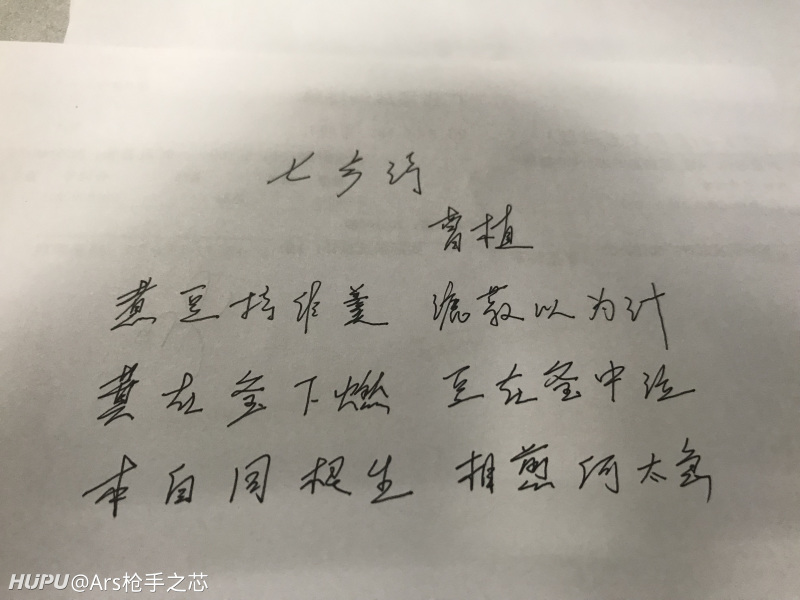 七步诗
曹植
煮豆持作羹 漉菽以为汁
萁在釜下燃 豆在釜中泣
本自同根生 相煎何太急
HUPU@Ars枪手之芯